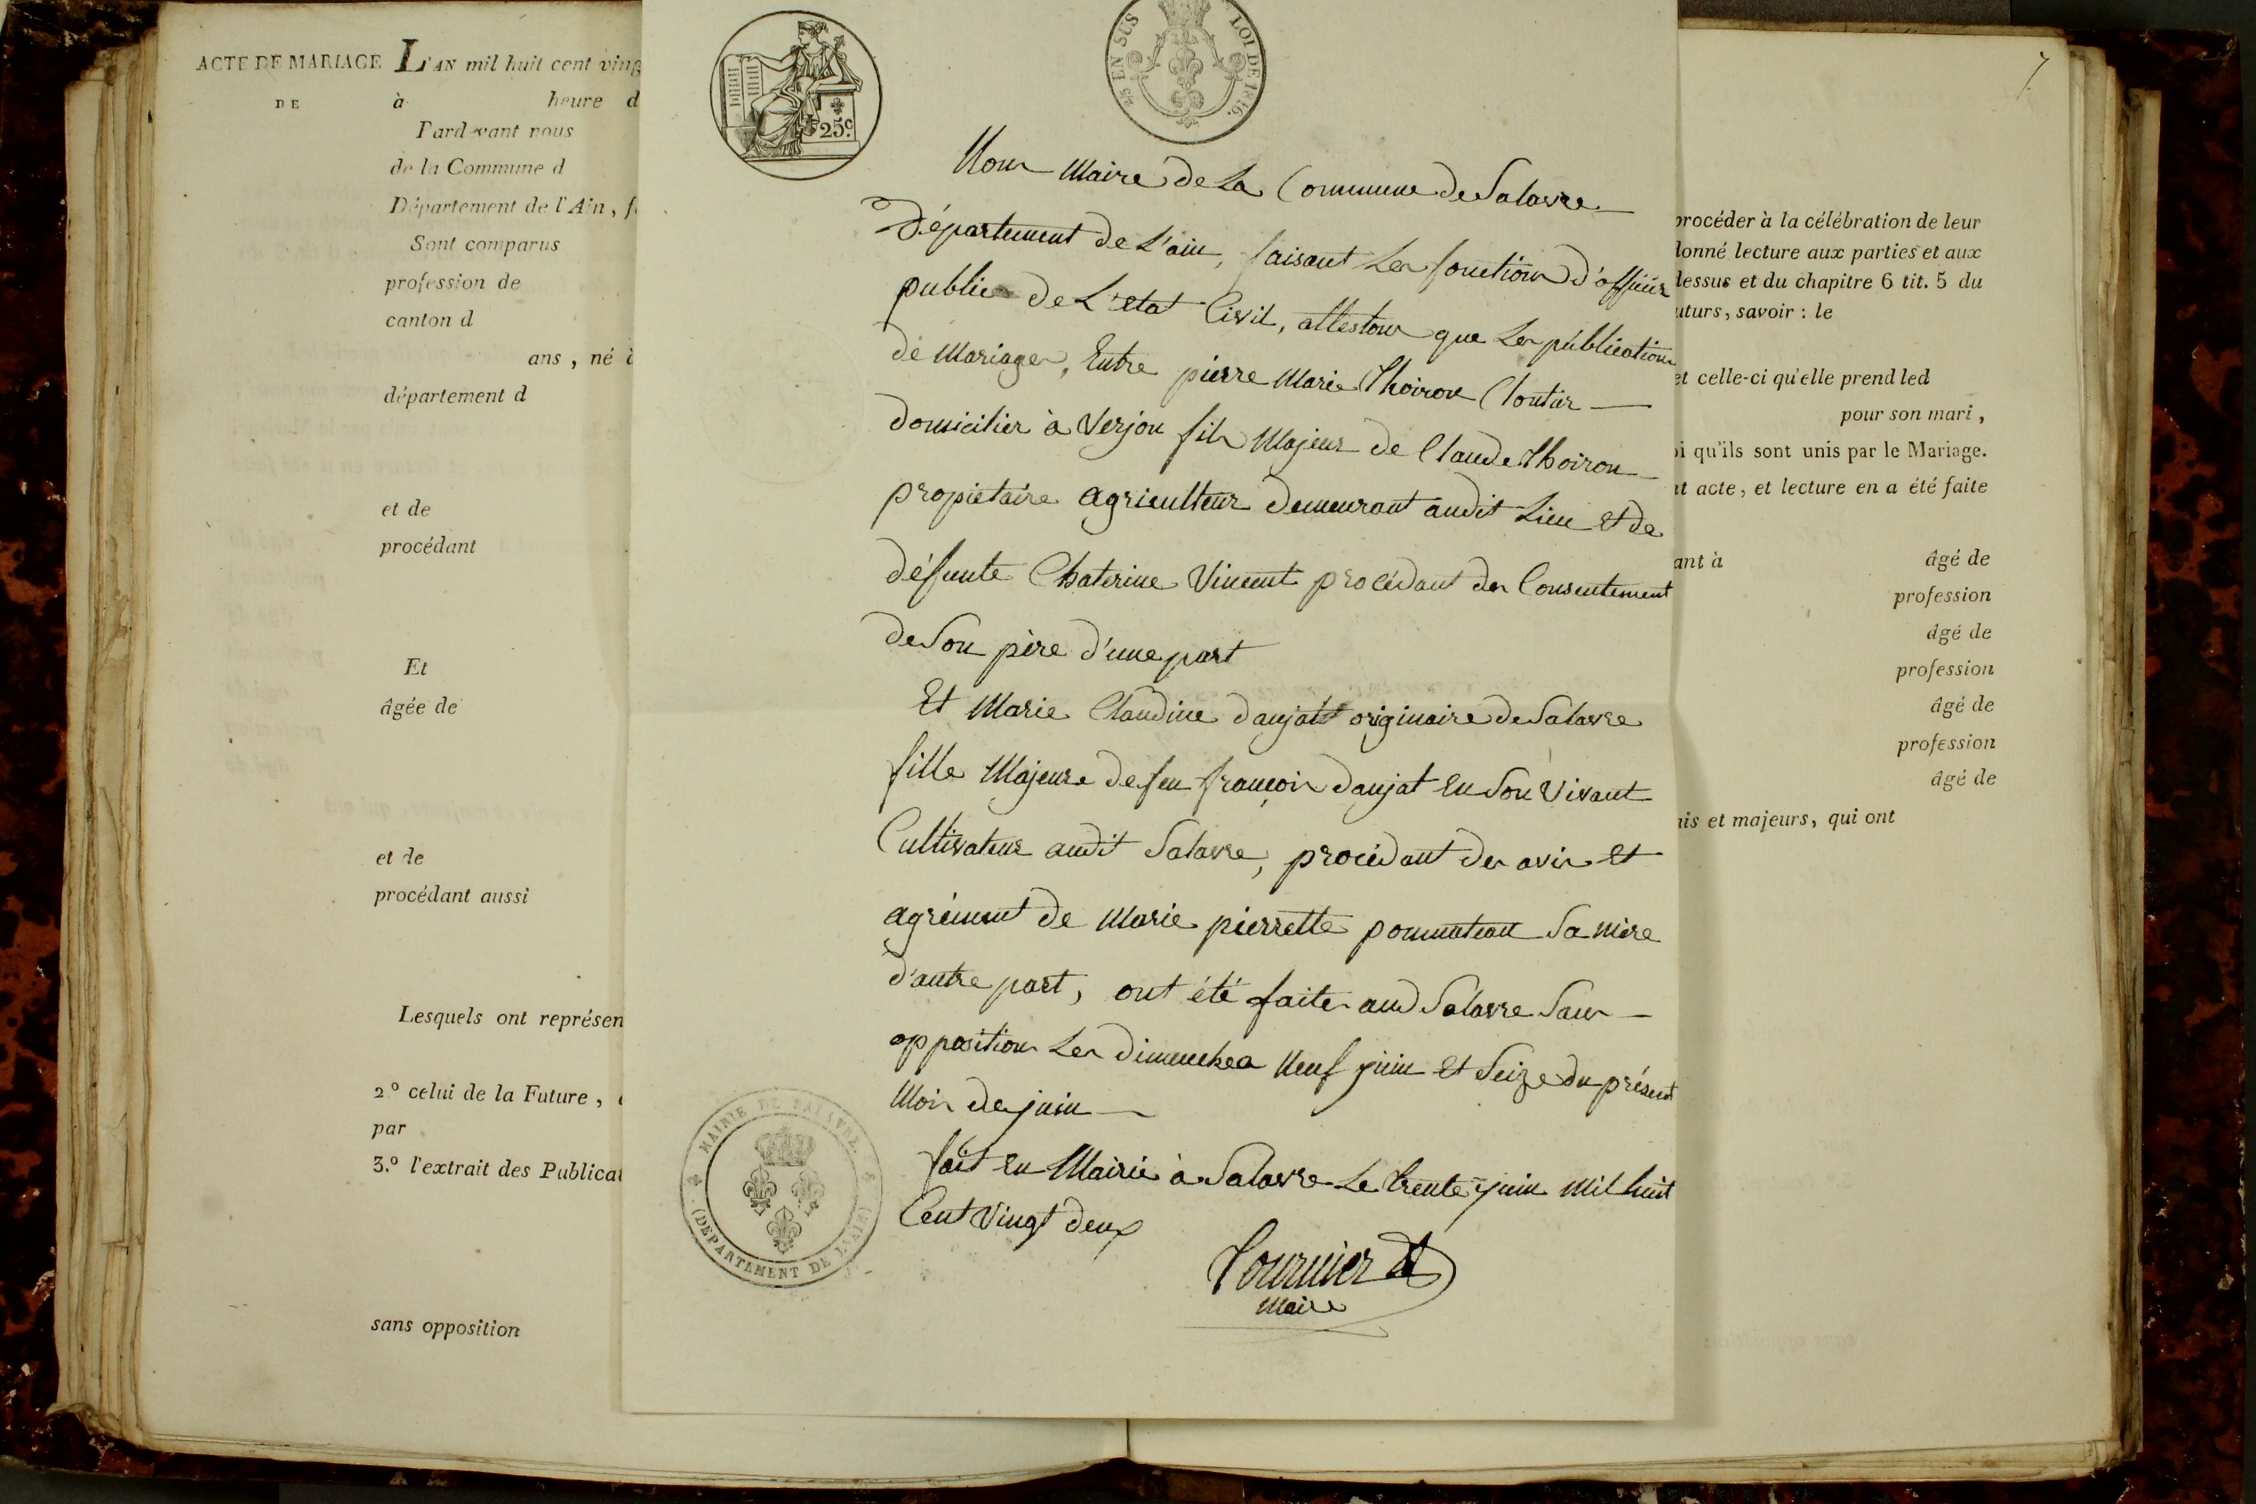 ACTE DE MARIAGE
DE
L'AN mil huit cent ving
à heure d
Pardevant nous
de la Commune d
Département de l'Ain, f
Sont comparus
profession de
canton d
ans, né à
département d
et de
procédant
Et
âgée de
et de
procédant aussi
Lesquels ont représen
2.º celui de la Future,
par
3.º l'extrait des Publicat
sans opposition
25.c
EN SUS
LOI DE 1816.
Nous Maire de La Commune de Salavre
Département de L'ain, faisant Les fonctions d'officier
public de L'etat Civil, attestons que Les publications
de Mariages, Entre pierre Marie Thoiron Cloutier
domicilier à Verjon fils Majeur de Claude Thoiron
propietaire agriculteur demeurant audit Lieu et de
défunte Chaterine Vincent procédant des Consentement
de Son père d'une part
Et Marie Claudine daujat originaire de Salavre
fille Majeure de feu françois daujat en Son Vivant
Cultivateur audit Salavre, procédant des avis et
agrément de Marie pierrette Sa mère
d'autre part, ont été faites aud Salavre Sans
opposition Les dimenches Neuf juin et Seize du présent
Mois de juin
fait en Mairie à Salavre Le trente juin Mil huit
Cent Vingt deux
Fournier
Maire
MAIRIE DE SALAVRE
(DEPARTEMENT DE L'AIN)
7
procéder à la célébration de leur
donné lecture aux parties et aux
dessus et du chapitre 6 tit. 5 du
uturs, savoir : le
et celle-ci qu'elle prend led
pour son mari,
oi qu'ils sont unis par le Mariage.
nt acte, et lecture en a été faite
ant à âgé de
profession
âgé de
profession
âgé de
profession
âgé de
nis et majeurs, qui ont